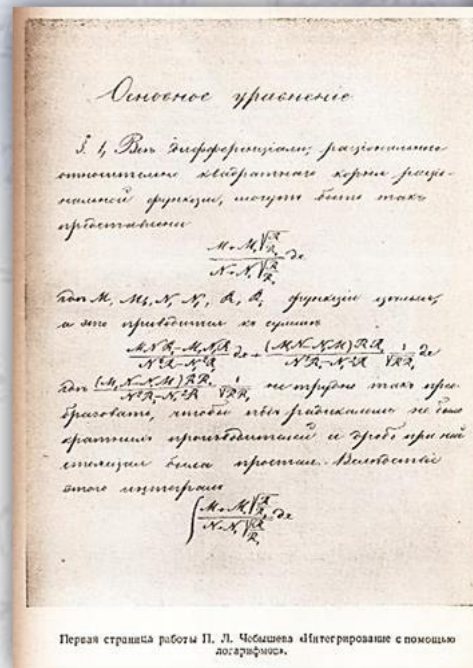 Основное уравненіе
§. 1, Все дифференціалы, раціональные
относительно квадратнаго корня раціо-
нальной функціи, могутъ быть такъ
представлены
\frac{M+M_1\sqrt{\frac{R}{R_1}}}{N+N_1\sqrt{\frac{R}{R_1}}}dx
гдѣ M, M_1, N, N_1, R, R_1 функціи цѣлыя,
а это приводится къ суммѣ
dx + \frac{(M_1N-N_1M)RR_1}{N^2R_1-N_1^2R}\frac{1}{\sqrt{RR_1}}dx
\frac{(M_1N-N_1M)RR_1}{N^2R_1-N_1^2R}\frac{1}{\sqrt{RR_1}} не трудно такъ пре-
бразовать, чтобы подъ радикаломъ не было
кратныхъ производителей и дробь при немъ
стоящая была простая. Вслѣдствіе
этого интегралъ
\int\frac{M+M_1\sqrt{\frac{R}{R_1}}}{N+N_1\sqrt{\frac{R}{R_1}}}dx
Первая страница работы П. Л. Чебышева «Интегрирование с помощью
логарифмов».